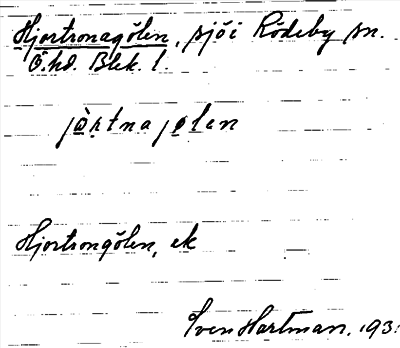 Hjortronagölen, sjö i Rödeby sn.
Ö. hd. Blek. l.
jò̱ṛtnajø̱len
Hjortrongölen, ek
Sven Hartman. 193